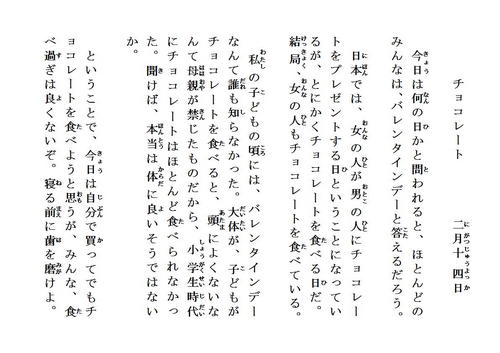 チョコレート　二月十四日
今日は何の日かと問われると、ほとんどの
みんなは、バレンタインデーと答えるだろう。
日本では、女の人が男の人にチョコレー
トをプレゼントする日ということになってい
るが、とにかくチョコレートを食べる日だ。
結局、女の人もチョコレートを食べている。
私の子どもの頃には、バレンタインデー
なんて誰も知らなかった。大体が、子どもが
チョコレートを食べると、頭によくないな
んて母親が禁じたものだから、小学生時代
にチョコレートはほとんど食べられなかっ
た。聞けば、本当は体に良いそうではない
か。
ということで、今日は自分で買ってでもチ
ョコレートを食べようと思うが、みんな、食
べ過ぎは良くないぞ。寝る前に歯を磨けよ。